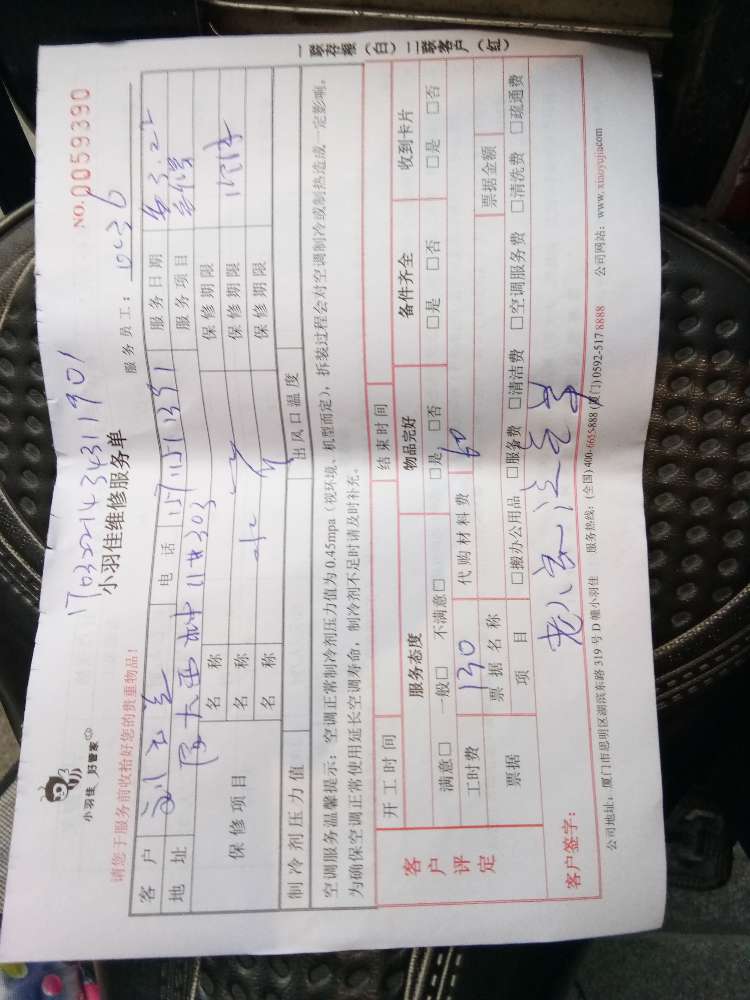 一联存根（白）二联客户（红）
NO.0059390
小羽佳 好管家
小羽佳维修服务单
服务员工：
请您于服务前收拾好您的贵重物品！
客户 电话 服务日期
地址 11#303 服务项目
保修项目 名称 保修期限
名称 保修期限
名称 保修期限
制冷剂压力值 出风口温度
空调服务温馨提示：空调正常制冷剂压力值为0.45mpa（视环境、机型而定），拆装过程会对空调制冷或制热造成一定影响。
为确保空调正常使用延长空调寿命，制冷剂不足时请及时补充。
客户评定 开工时间 结束时间
服务态度 物品完好 备件齐全 收到卡片
满意□ 一般□ 不满意□ □是 □否 □是 □否 □是 □否
工时费 130 代购材料费 60
票据 票据名称 票据金额
项目 □搬办公用品 □服务费 □清洁费 □空调服务费 □清洗费 □疏通费
客户签字：
公司地址：厦门市思明区湖滨东路319号D幢小羽佳 服务热线：(全国)400-4655-888 (厦门)0592-517 8888 公司网站：www.xiaoyujia.com